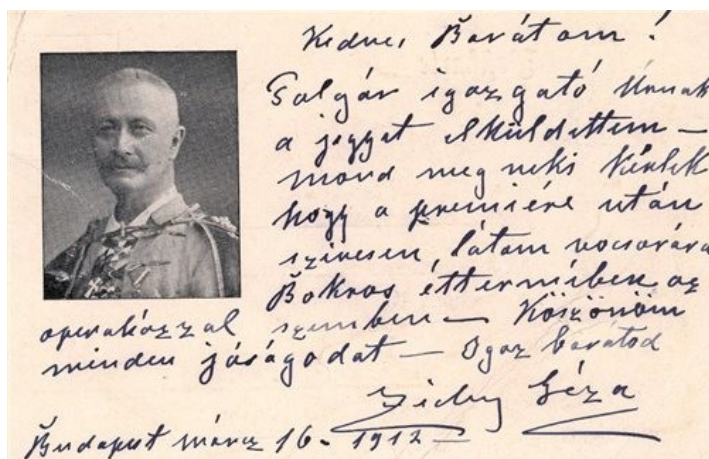 Kedves Barátom!
Salgár igazgató Úrnak
a jegyet elküldöttem —
mond meg neki kérlek
hogy a premiére után
szivesen látom vocsorára
Bokros éttermében az
operaházzal szemben — Köszönöm
minden jóságodat — Igaz barátod
Zichy Géza
Budapest márcz 16. 1912 —